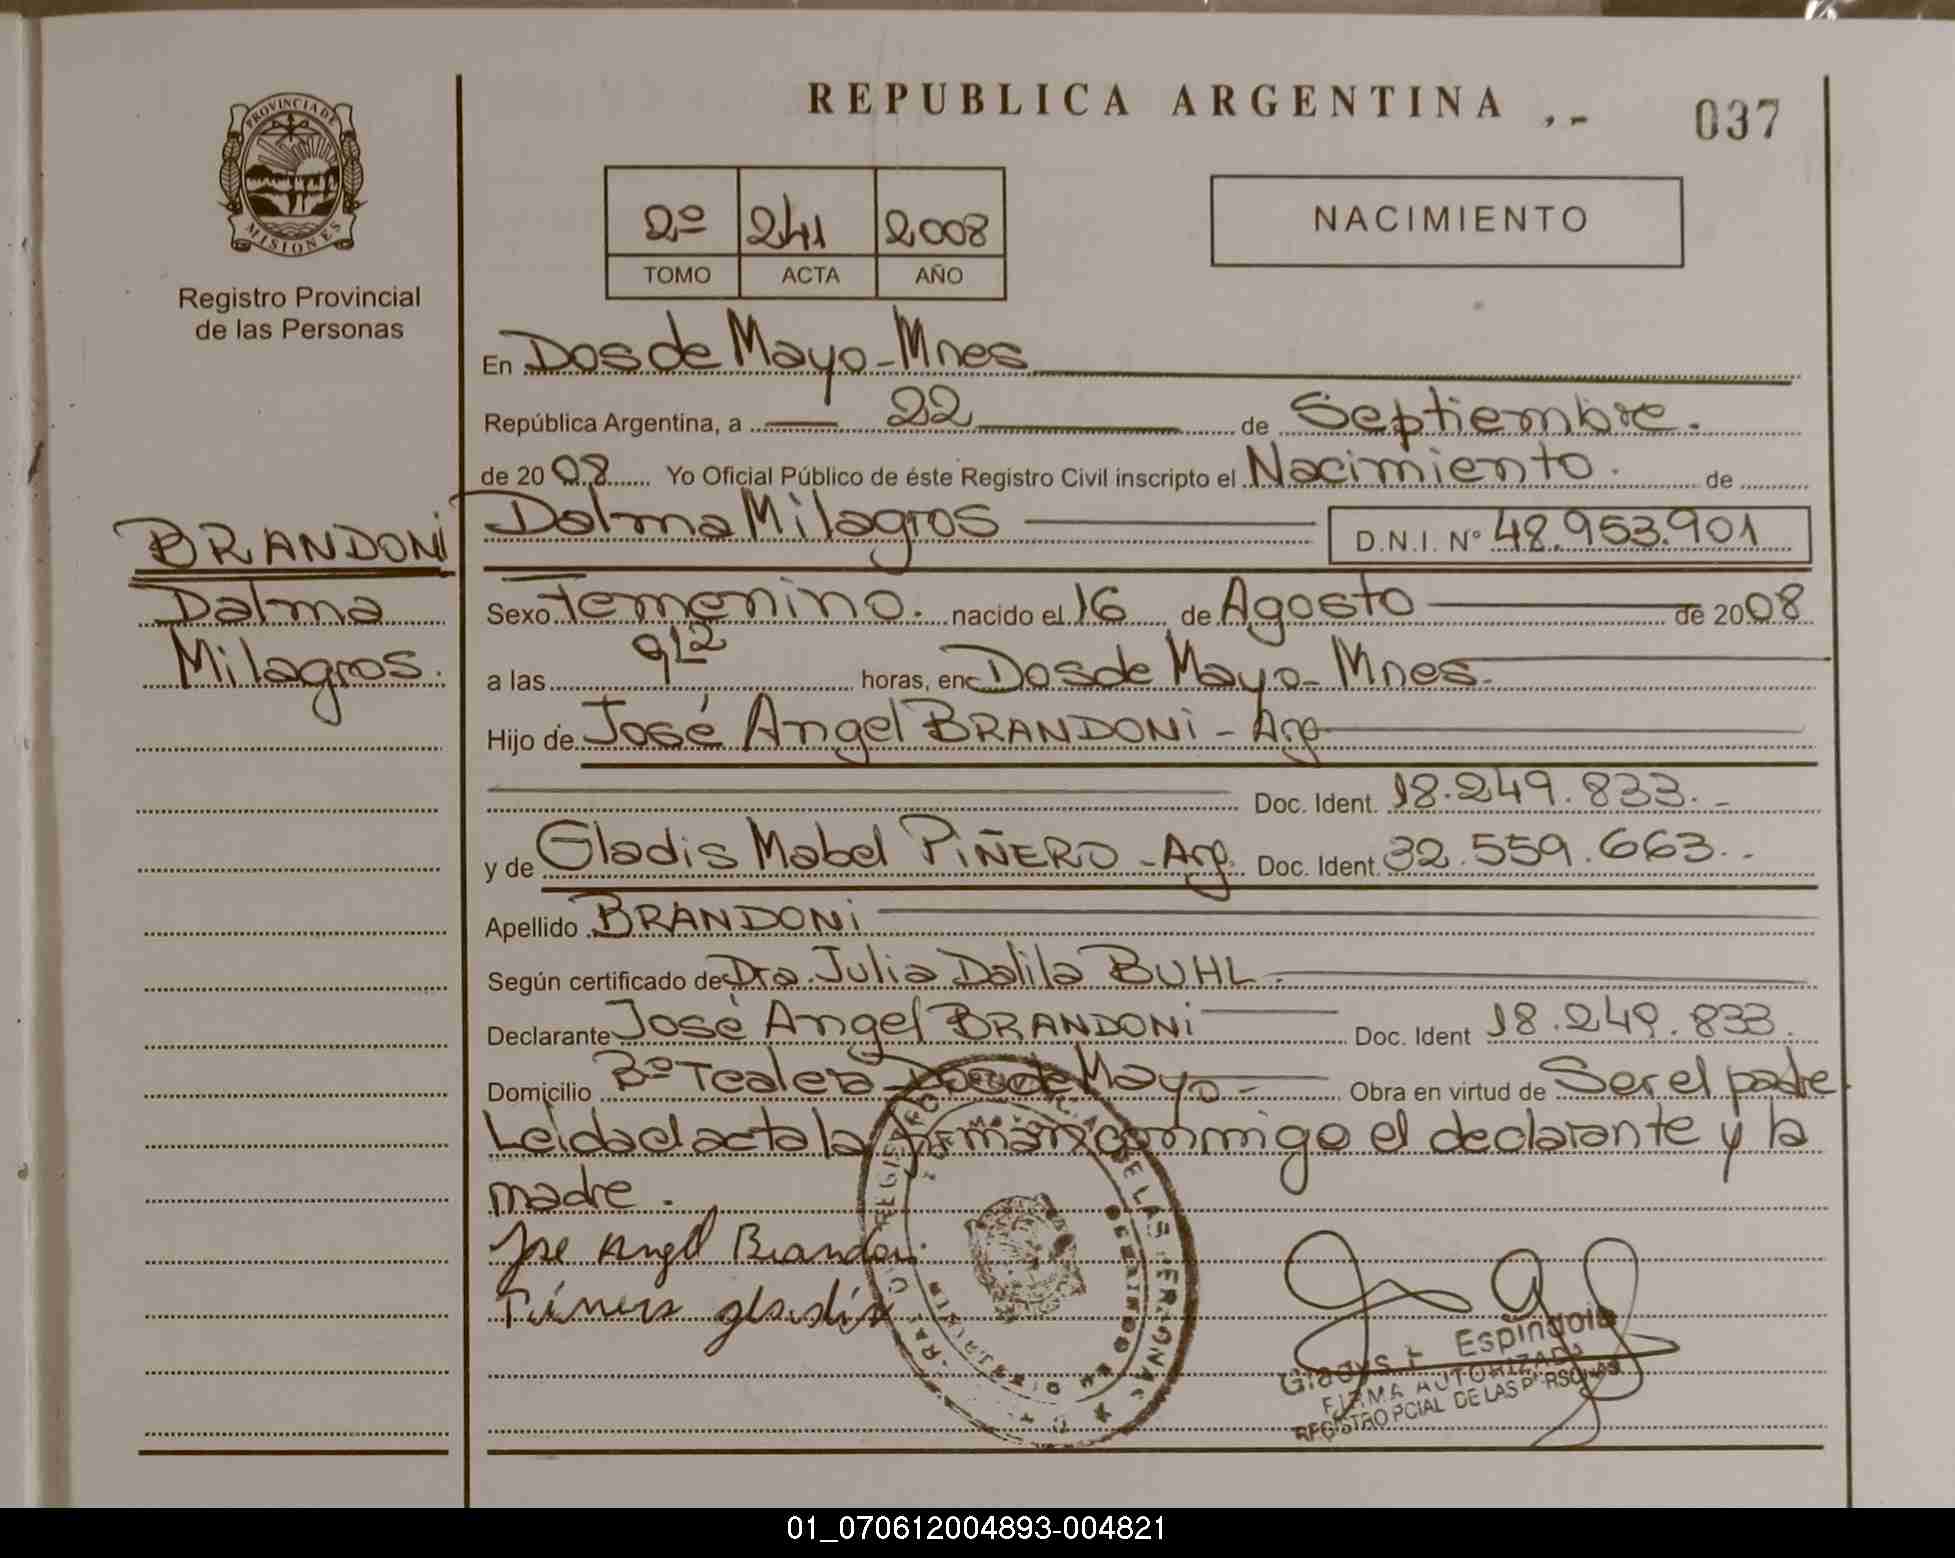 REPUBLICA ARGENTINA
037
PROVINCIA DE
MISIONES
Registro Provincial
de las Personas
2º 241 2008
TOMO ACTA AÑO
NACIMIENTO
En Dos de Mayo - Mnes
República Argentina, a 22 de Septiembre.
de 2008 Yo Oficial Público de éste Registro Civil inscripto el Nacimiento. de
BRANDONI
Dalma
Milagros.
Dalma Milagros D.N.I. Nº 48.953.901
Sexo Femenino. nacido el 16 de Agosto de 2008
a las horas, en Dos de Mayo - Mnes.
Hijo de José Angel BRANDONI - Arg
Doc. Ident. 18.249.833.-
y de Gladis Mabel PIÑERO - Arg. Doc. Ident. 32.559.663.-
Apellido BRANDONI
Según certificado de Dra. Julia Dalila BUHL.
Declarante José Angel BRANDONI Doc. Ident 18.249.833.
Domicilio Bº Tealera - Dos de Mayo - Obra en virtud de Ser el padre.
Leida el acta la firman conmigo el declarante y la
madre.
Jose Angel Brandoni
Gladys Espindola
FIRMA AUTORIZADA
REGISTRO PCIAL DE LAS PERSONAS
01_070612004893-004821